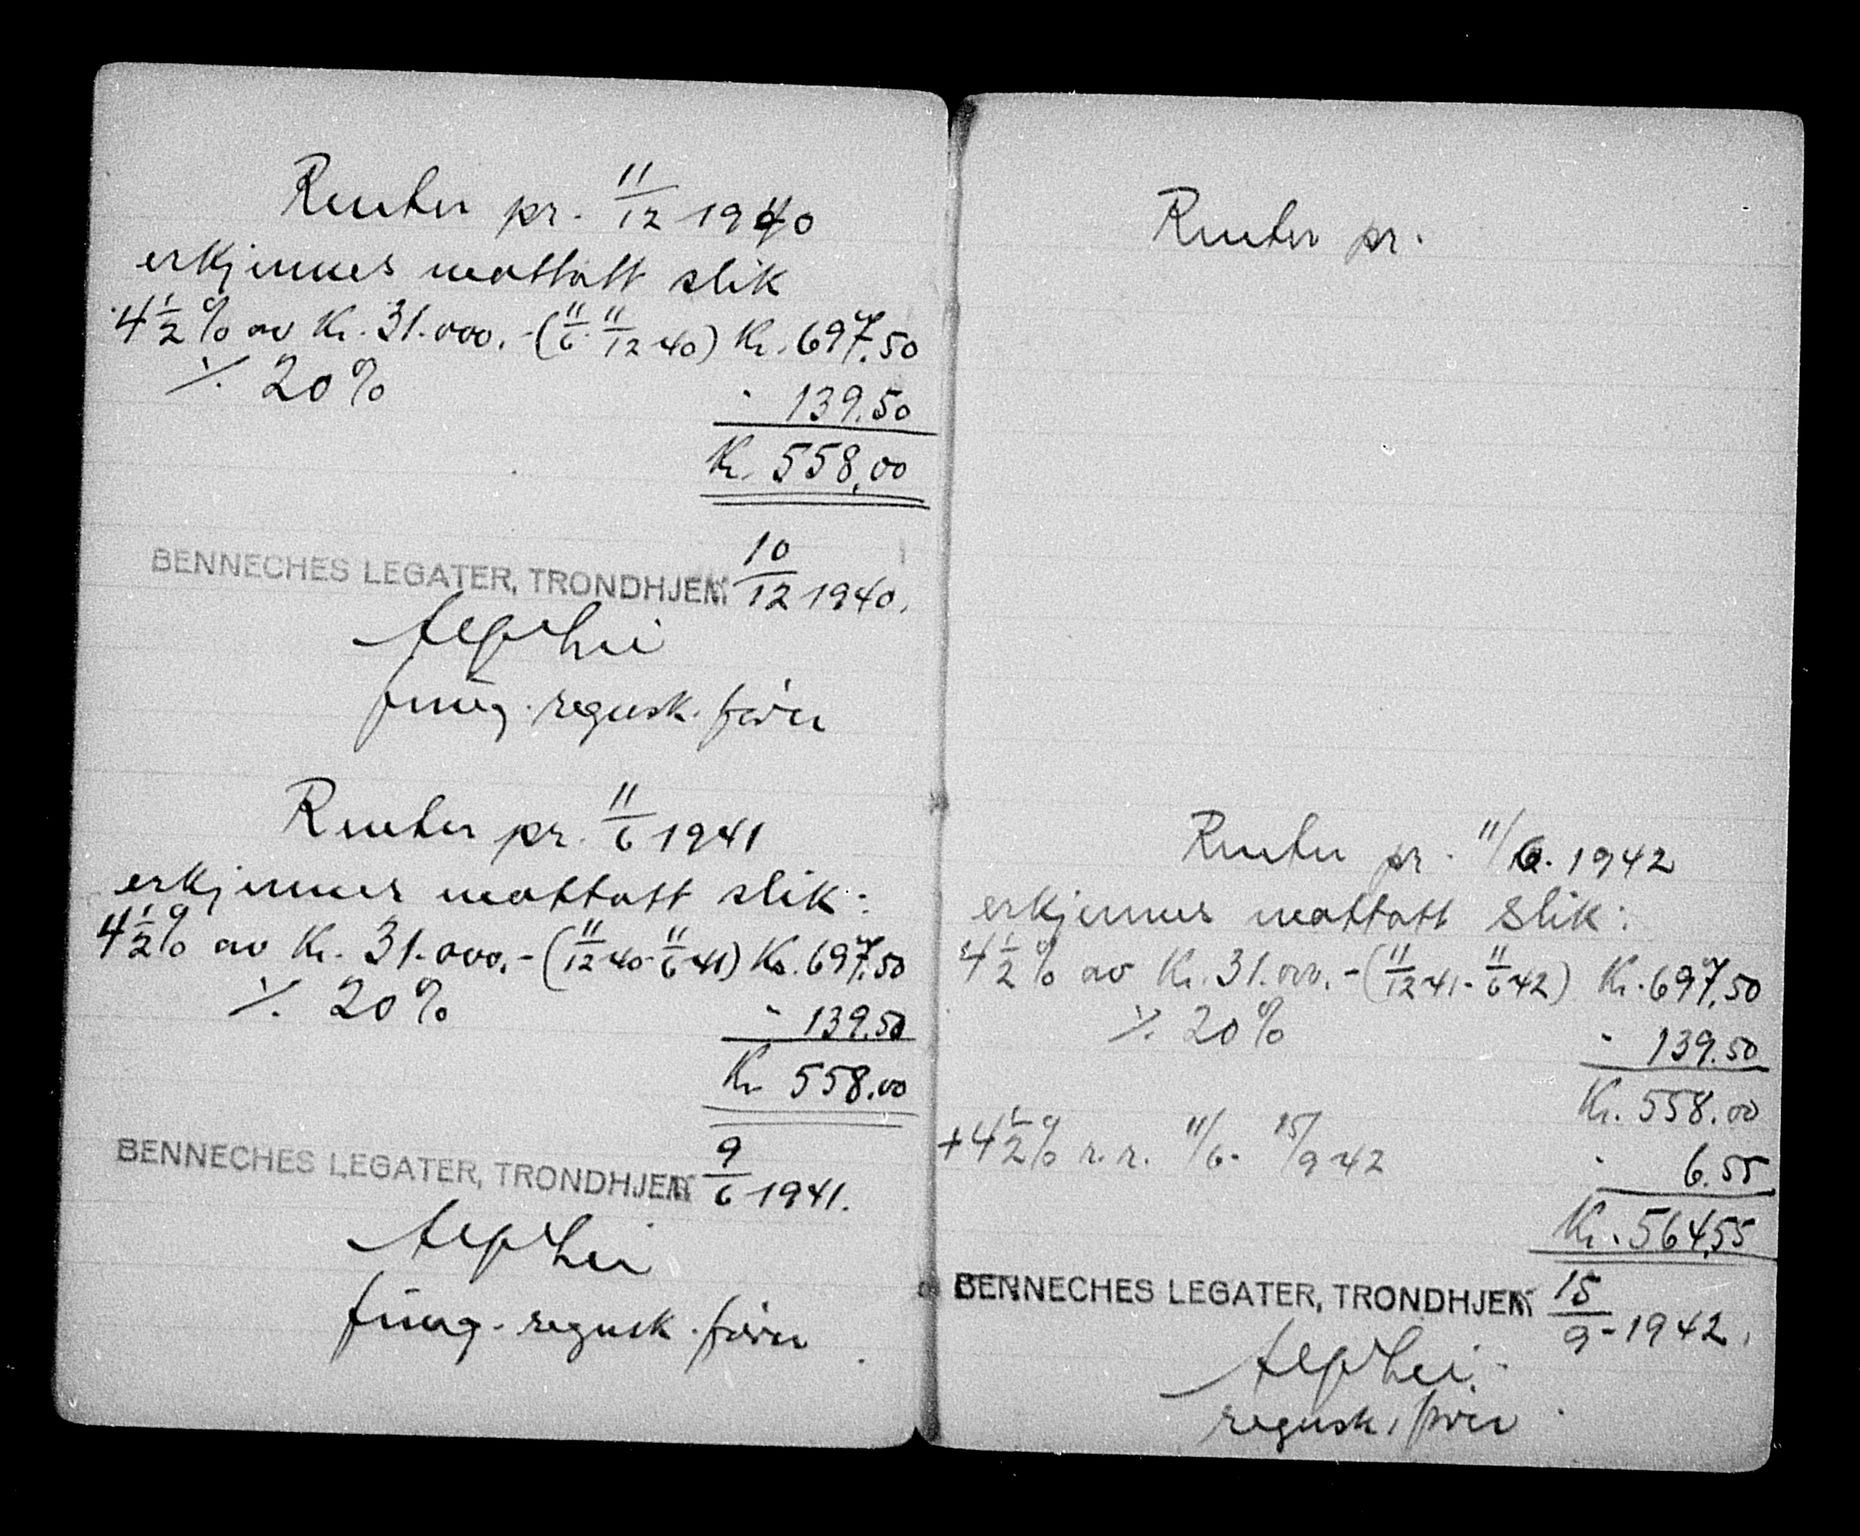 Renter pr. 11/12 1940
erkjennes mottatt slik
4 1/2 % av Kr. 31.000.- (11/6 - 11/12 40) Kr. 697.50
÷ 20% " 139.50
Kr. 558,00
BENNECHES LEGATER, TRONDHJEM 10/12 1940.
fung. regnsk. fører
Renter pr. 11/6 1941
erkjennes mottatt slik:
4 1/2 % av Kr. 31.000.- (11/12 40 - 11/6 41) Kr. 697.50
÷ 20% " 139.50
Kr 558.00
BENNECHES LEGATER, TRONDHJEM 9/6 1941.
fung. regnsk. fører
Renter pr.
Renter pr. 11/6. 1942
erkjennes mottatt slik:
4 1/2 % av Kr. 31.000.- (11/12 41 - 11/6 42) Kr. 697,50
÷ 20% " 139.50
Kr. 558.00
+ 4 1/2 % r. r. 11/6 - 15/9 42 " 6.55
Kr. 564,55
BENNECHES LEGATER, TRONDHJEM 15/9 - 1942.
regnsk. fører